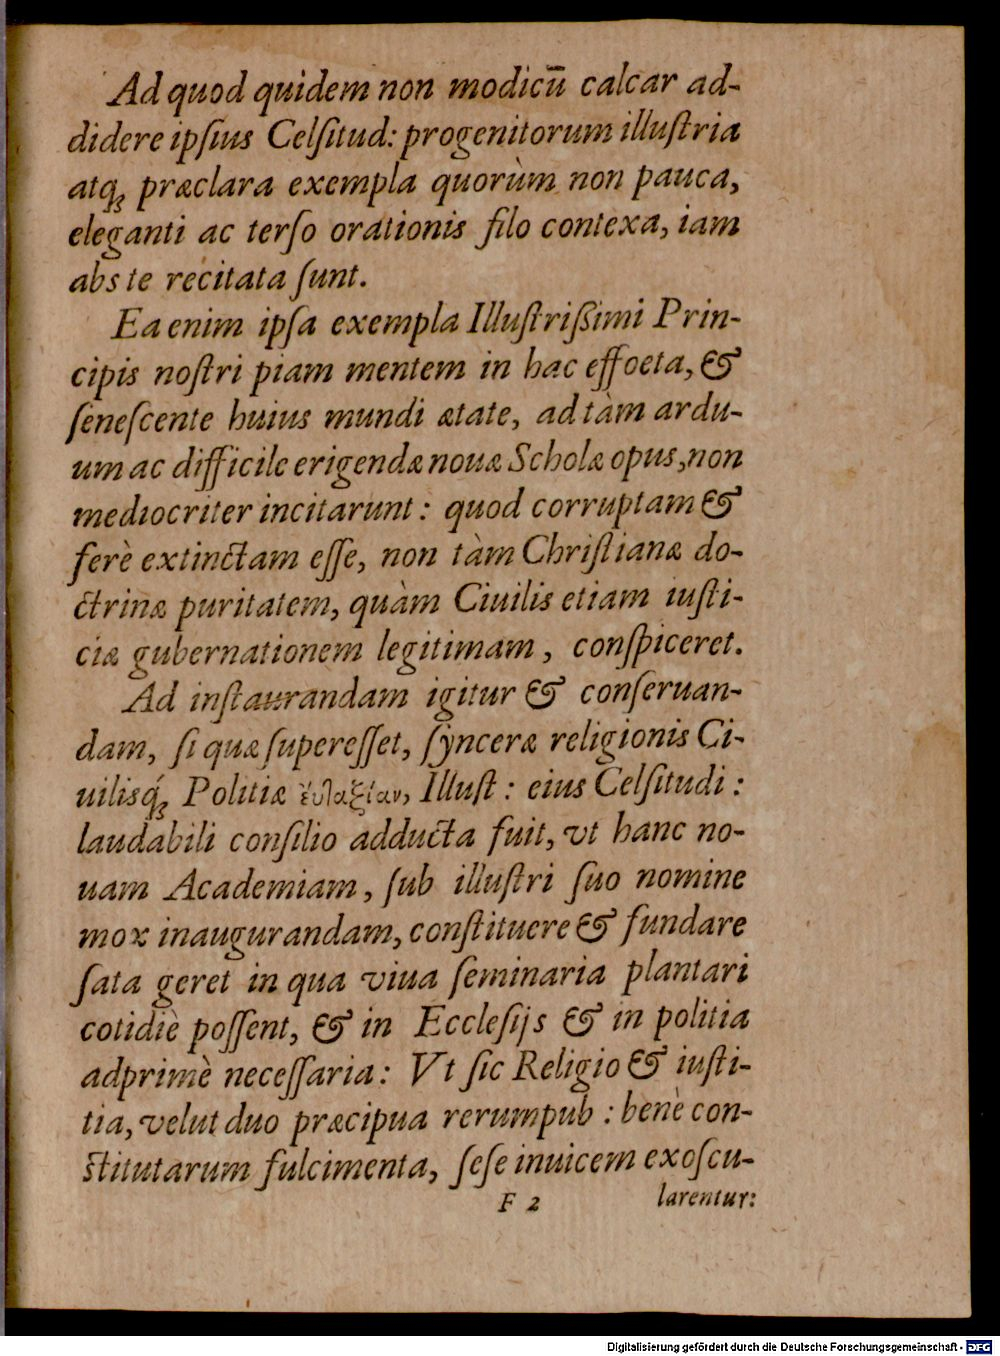 Ad quod quidem non modicū calcar ad-
didere ipſius Celſitud: progenitorum illuſtria
atq́ꝫ præclara exempla quorùm non pauca,
eleganti ac terſo orationis filo contexa, iam
abs te recitata ſunt.
Ea enim ipſa exempla Illuſtriſsimi Prin-
cipis noſtri piam mentem in hac effoeta, &
ſeneſcente huius mundi ætate, ad tàm ardu-
um ac difficile erigendæ nouæ Scholæ opus, non
mediocriter incitarunt: quod corruptam &
ferè extinctam eſſe, non tàm Chriſtianæ do-
ctrinæ puritatem, quàm Ciuilis etiam iuſti-
ciæ gubernationem legitimam, conſpiceret.
Ad inſtaurandam igitur & conſeruan-
dam, ſi quæ ſupereſſet, ſynceræ religionis Ci-
uilisq́ꝫ Politiæ ἐυταξίαν, Illuſt: eius Celſitudi:
laudabili conſilio adducta fuit, vt hanc no-
uam Academiam, ſub illuſtri ſuo nomine
mox inaugurandam, conſtituere & fundare
ſata geret in qua viua ſeminaria plantari
cotidiè poſſent, & in Eccleſijs & in politia
adprimè neceſſaria: Vt ſic Religio & iuſti-
tia, velut duo præcipua rerumpub: benè con-
ſtitutarum fulcimenta, ſeſe inuicem exoſcu-
F 2 larentur:
Digitalisierung gefördert durch die Deutsche Forschungsgemeinschaft - DFG